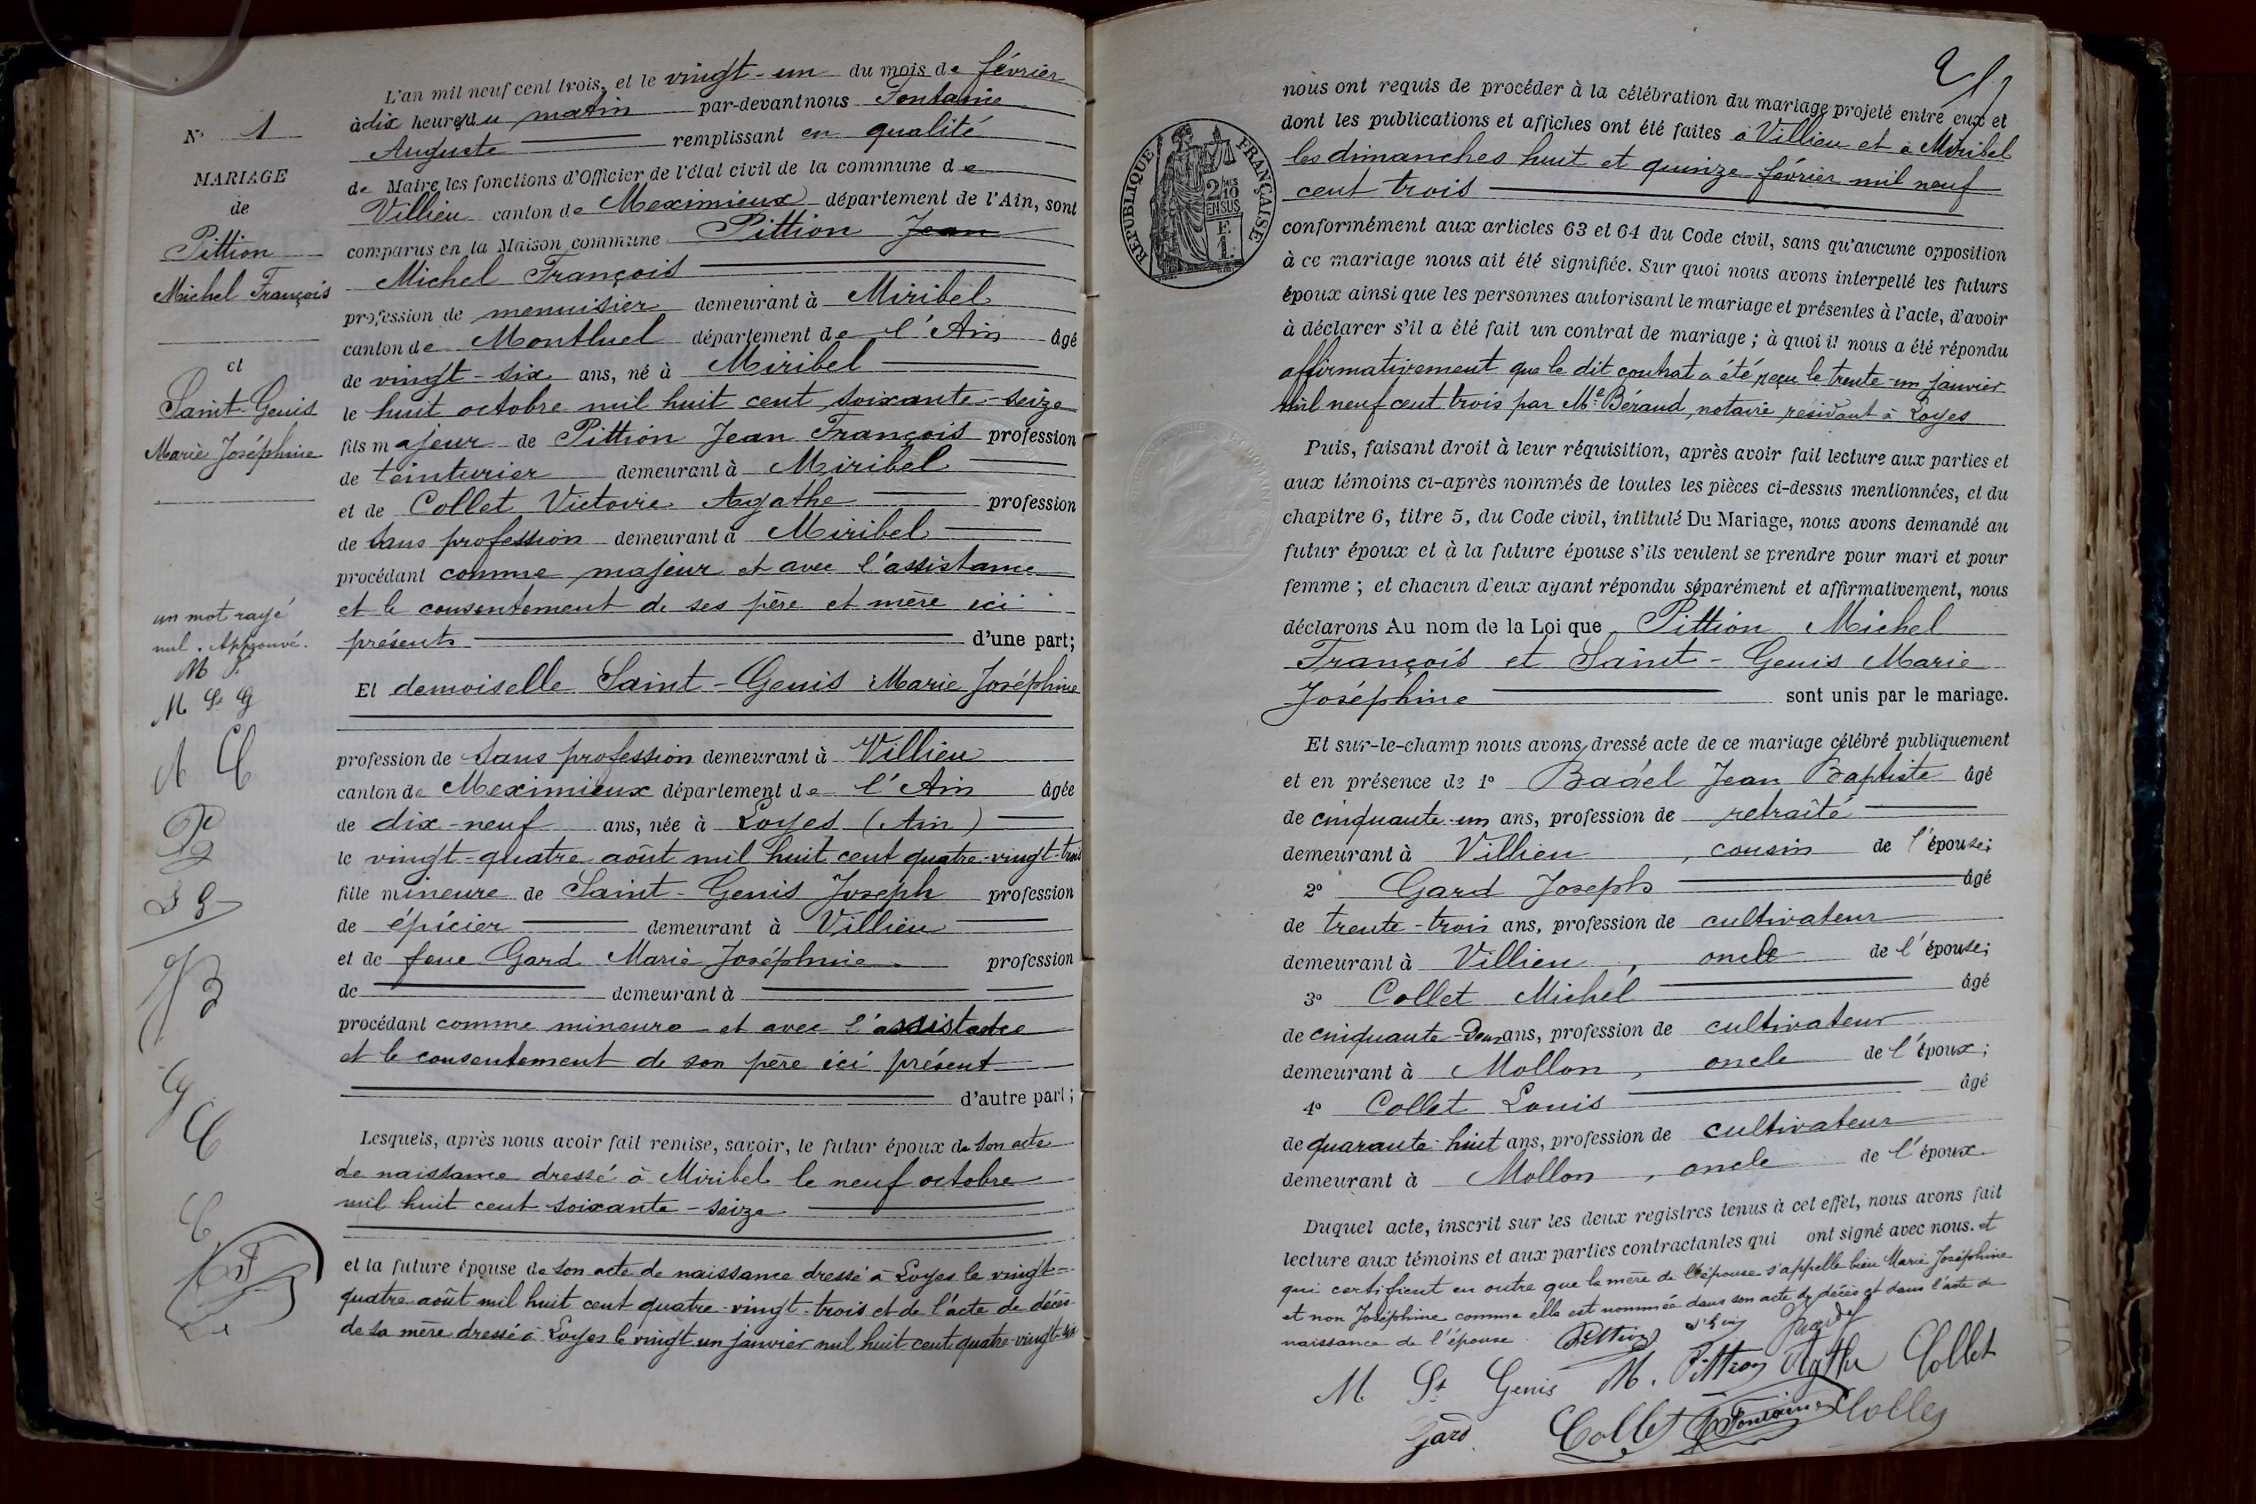 N° 1
MARIAGE
de
Pittion
Michel François
et
Saint-Genis
Marie Joséphine
un mot rayé
nul. Approuvé.
M P.
M St G
A C
L'an mil neuf cent trois, et le vingt-un du mois de février
à dix heures du matin par-devant nous Fontaine
Auguste remplissant en qualité
de Maire les fonctions d'Officier de l'état civil de la commune de
Villieu canton de Meximieux département de l'Ain, sont
comparus en la Maison commune Pittion Jean
Michel François
profession de menuisier demeurant à Miribel
canton de Montluel département de l'Ain âgé
de vingt-six ans, né à Miribel
le huit octobre mil huit cent soixante-seize
fils majeur de Pittion Jean François profession
de teinturier demeurant à Miribel
et de Collet Victoire Agathe profession
de sans profession demeurant à Miribel
procédant comme majeur et avec l'assistance
et le consentement de ses père et mère ici
présents d'une part;
Et demoiselle Saint-Genis Marie Joséphine
profession de sans profession demeurant à Villieu
canton de Meximieux département de l'Ain âgée
de dix-neuf ans, née à Loyes (Ain)
le vingt-quatre août mil huit cent quatre-vingt-trois
fille mineure de Saint-Genis Joseph profession
de épicier demeurant à Villieu
et de feue Gard Marie Joséphine profession
de demeurant à
procédant comme mineure et avec l'assistance
et le consentement de son père ici présent
d'autre part;
Lesquels, après nous avoir fait remise, savoir, le futur époux de son acte
de naissance dressé à Miribel le neuf octobre
mil huit cent soixante-seize
et la future épouse de son acte de naissance dressé à Loyes le vingt-
quatre août mil huit cent quatre-vingt-trois et de l'acte de décès
de sa mère dressé à Loyes le vingt un janvier mil huit cent quatre-vingt-six
RÉPUBLIQUE FRANÇAISE
2/10
EN SUS
nous ont requis de procéder à la célébration du mariage projeté entre eux et
dont les publications et affiches ont été faites à Villieu et à Miribel
les dimanches huit et quinze février mil neuf
cent trois
conformément aux articles 63 et 64 du Code civil, sans qu'aucune opposition
à ce mariage nous ait été signifiée. Sur quoi nous avons interpellé les futurs
époux ainsi que les personnes autorisant le mariage et présentes à l'acte, d'avoir
à déclarer s'il a été fait un contrat de mariage; à quoi il nous a été répondu
affirmativement que le dit contrat a été reçu le trente-un janvier
mil neuf cent trois par Me Béraud, notaire résidant à Loyes
Puis, faisant droit à leur réquisition, après avoir fait lecture aux parties et
aux témoins ci-après nommés de toutes les pièces ci-dessus mentionnées, et du
chapitre 6, titre 5, du Code civil, intitulé Du Mariage, nous avons demandé au
futur époux et à la future épouse s'ils veulent se prendre pour mari et pour
femme; et chacun d'eux ayant répondu séparément et affirmativement, nous
déclarons Au nom de la Loi que Pittion Michel
François et Saint-Genis Marie
Joséphine sont unis par le mariage.
Et sur-le-champ nous avons dressé acte de ce mariage célébré publiquement
et en présence de 1° Badel Jean Baptiste âgé
de cinquante-un ans, profession de retraité
demeurant à Villieu, cousin de l'épouse;
2° Gard Joseph âgé
de trente-trois ans, profession de cultivateur
demeurant à Villieu, oncle de l'épouse;
3° Collet Michel âgé
de cinquante-deux ans, profession de cultivateur
demeurant à Mollon, oncle de l'époux;
4° Collet Louis âgé
de quarante-huit ans, profession de cultivateur
demeurant à Mollon, oncle de l'époux.
Duquel acte, inscrit sur les deux registres tenus à cet effet, nous avons fait
lecture aux témoins et aux parties contractantes qui ont signé avec nous. et
qui certifient en outre que la mère de l'épouse s'appelle bien Marie Joséphine
et non Joséphine comme elle est nommée dans son acte de décès et dans l'acte de
naissance de l'épouse. Pittion
M St Genis M. Pittion Agathe Collet
Gard Collet Fontaine Collet